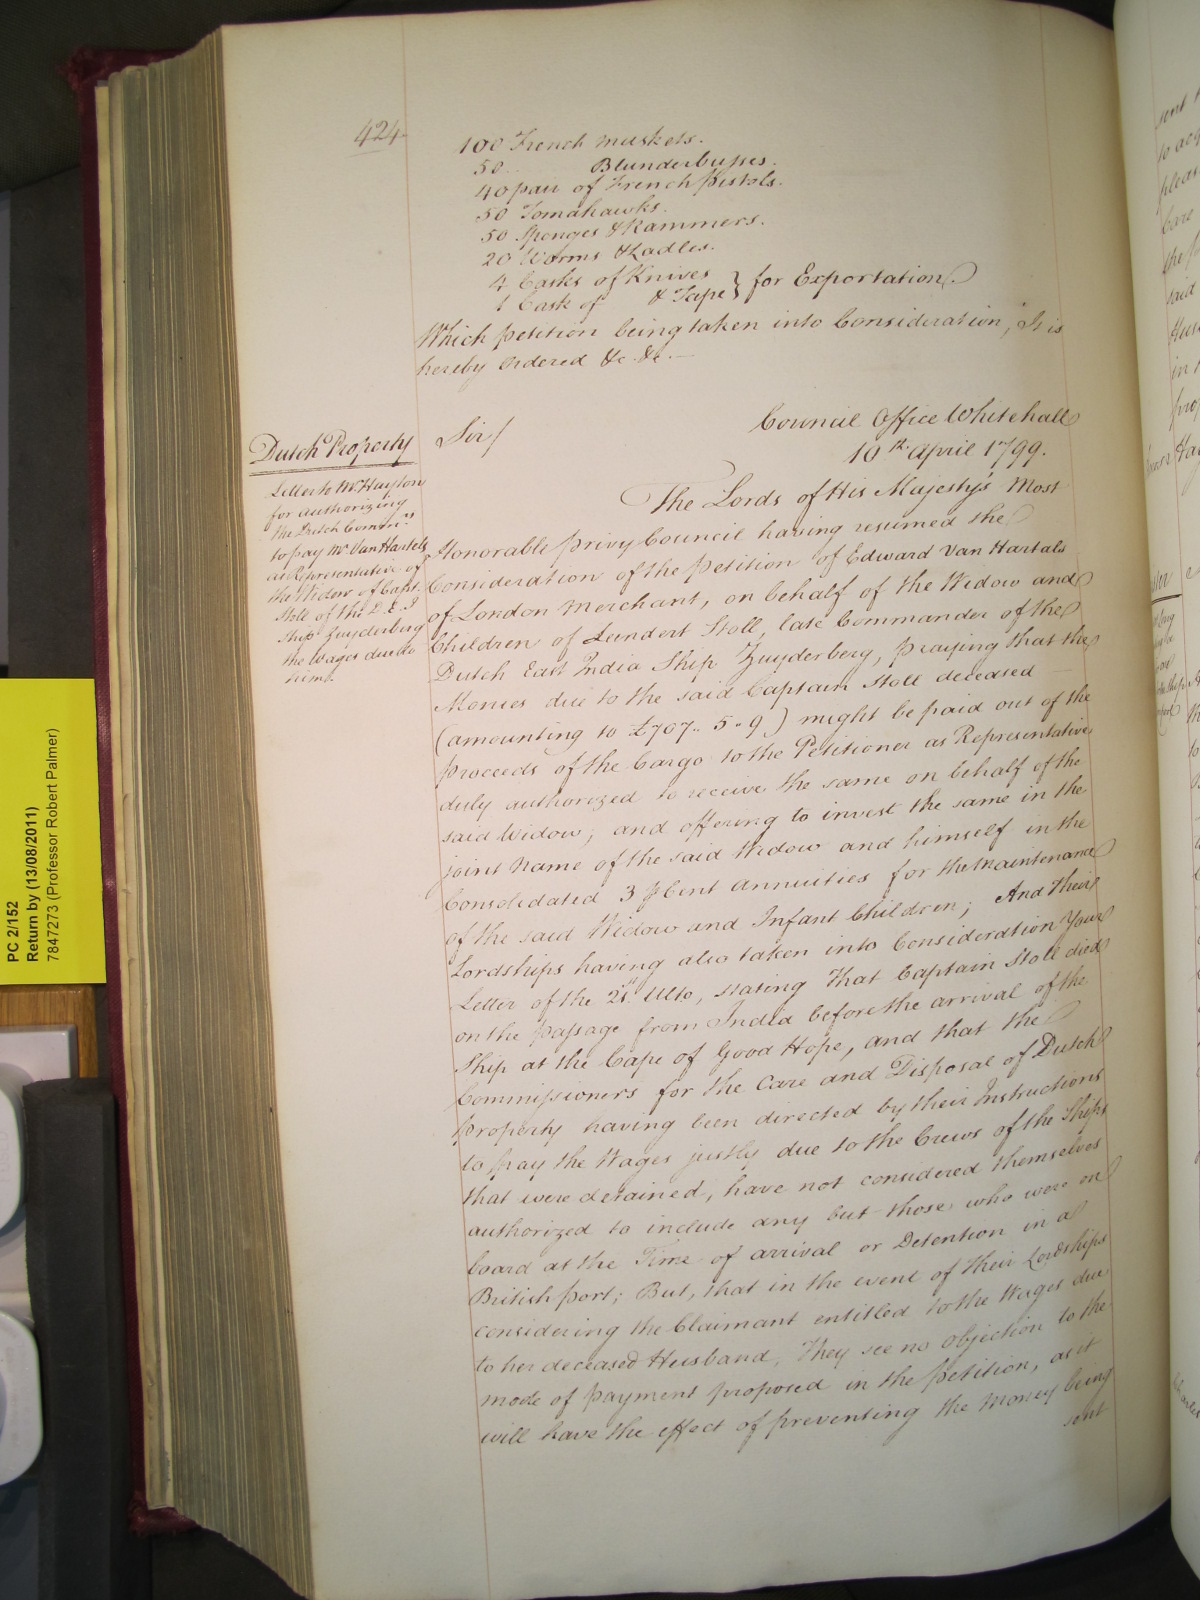 424
100 French muskets.
50 .. Blunderbusses.
40 pair of French Pistols.
50 Tomahawks.
50 Sponges & Rammers.
20 Worms & Ladles.
4 Casks of Knives } for Exportation.
1 Cask of & Tape
Which petition being taken into Consideration, It is
hereby Ordered &c. &c. —
Council Office Whitehall
10th. April 1799.
Sir/
Dutch Property
Letter to Mr. Huyton
for authorizing
the Dutch Commrs.
to pay Mr. Van Hartals
as Representative of
the Widow of Capt.
Stoll of the D. E. I
Ship Zuyderberg
the Wages due to
him.
The Lords of His Majesty's Most
Honorable Privy Council having resumed the
Consideration of the Petition of Edward Van Hartals
of London Merchant, on behalf of the Widow and
Children of Leendert Stoll, late Commander of the
Dutch East India Ship Zuyderberg, praying that the
Monies due to the said Captain Stoll deceased
(amounting to £707.. 5.. 9) might be paid out of the
proceeds of the Cargo to the Petitioner as Representative
duly authorized to receive the same on behalf of the
said Widow; and offering to invest the same in the
joint Name of the said Widow and himself in the
Consolidated 3 P Cent Annuities for the Maintenance
of the said Widow and Infant Children; And their
Lordships having also taken into Consideration Your
Letter of the 21st. Ulto, stating That Captain Stoll died
on the passage from India before the arrival of the
Ship at the Cape of Good Hope, and that the
Commissioners for the Care and Disposal of Dutch
Property having been directed by their Instructions
to pay the Wages justly due to the Crews of the Ships
that were detained, have not considered themselves
authorized to include any but those who were on
board at the Time of arrival or Detention in a
British port; But, that in the event of their Lordships
considering the Claimant entitled to the Wages due
to her deceased Husband, They see no objection to the
mode of payment proposed in the petition, as it
will have the effect of preventing the Money being
sent
PC 2/152
Return by (13/08/2011)
7847273 (Professor Robert Palmer)